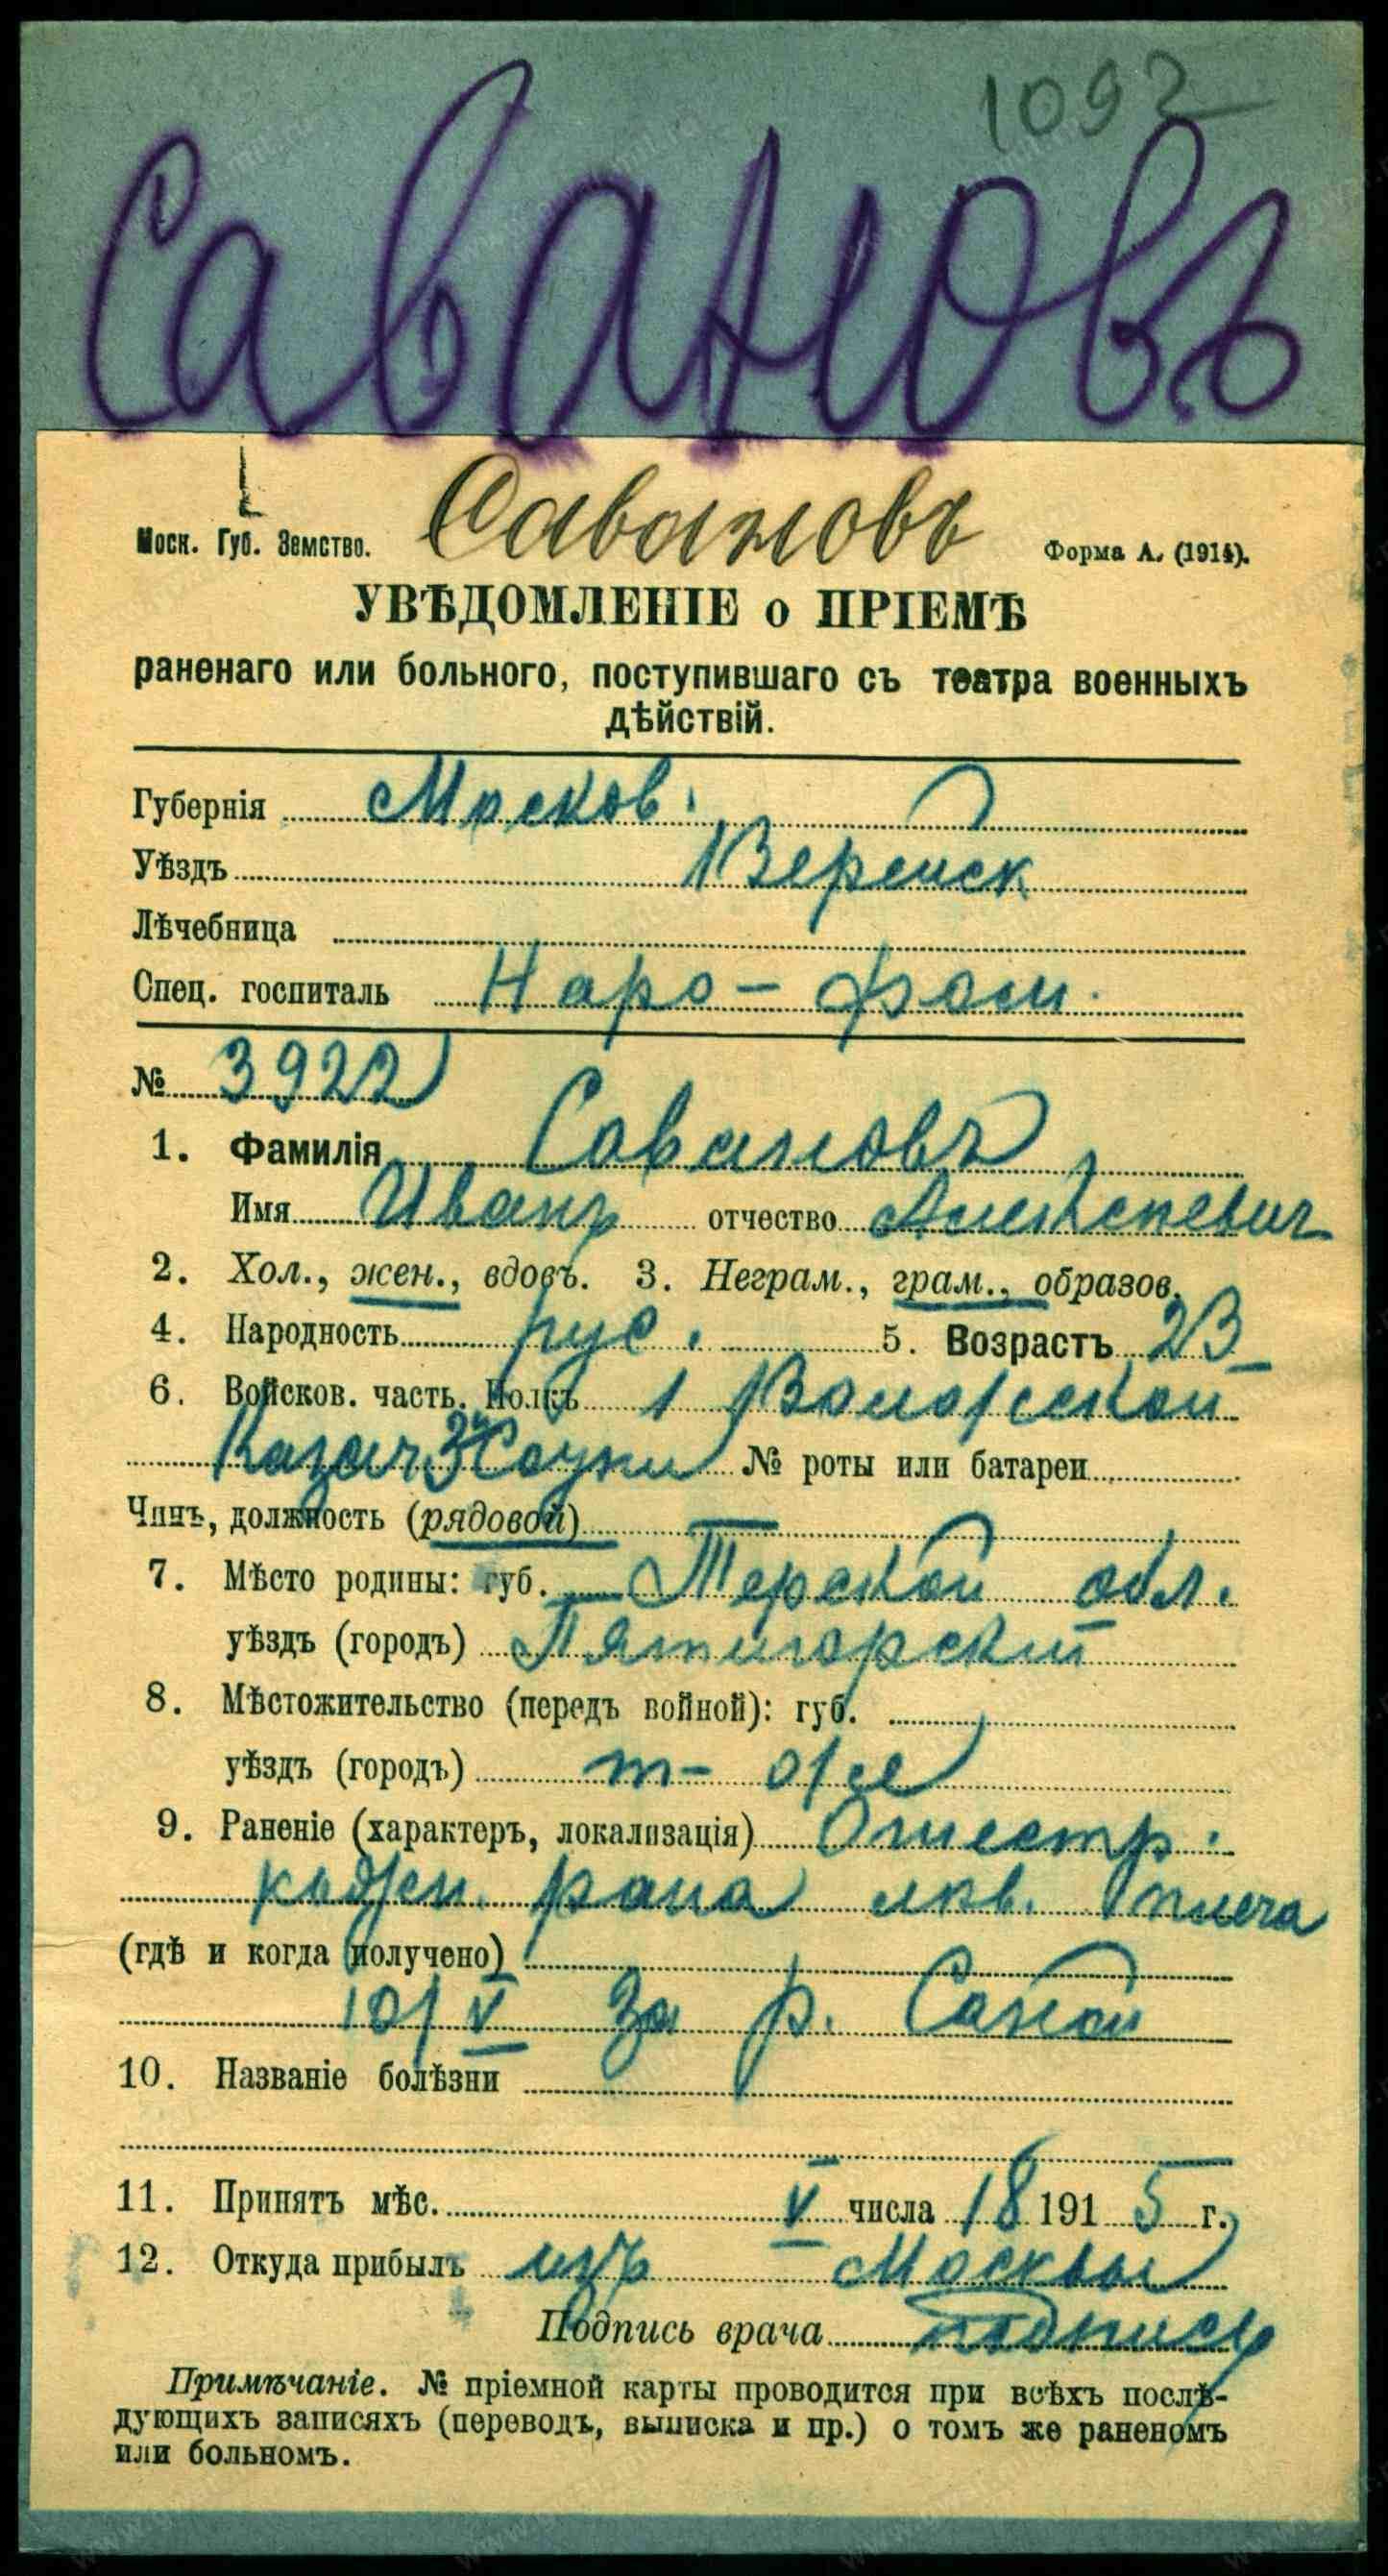 1092
Савановъ
Савановъ
Моск. Губ. Земство.
Форма А. (1914).
УВѢДОМЛЕНІЕ о ПРІЕМѢ
раненаго или больного, поступившаго съ театра военныхъ
дѣйствій.
Губернія Москов.
Уѣздъ Верейск
Лѣчебница
Спец. госпиталь Наро-Фом.
№ 3922
1. Фамилія Савановъ
Имя Иванъ отчество Алексѣевич
2. Хол., жен., вдовъ. 3. Неграм., грам., образов.
4. Народность рус. 5. Возрастъ 23
6. Войсков. часть. Полкъ 1 Волжской
Казач. 3й Сотни № роты или батареи
Чинъ, должность (рядовой)
7. Мѣсто родины: губ. Терской обл.
уѣздъ (городъ) Пятигорский
8. Мѣстожительство (передъ войной): губ.
уѣздъ (городъ) т-оже
9. Раненіе (характеръ, локализація) Огнестр.
рана лѣв. плеча
(гдѣ и когда получено)
10/V За р. Саном
10. Названіе болѣзни
11. Принятъ мѣс. V числа 18 1915 г.
12. Откуда прибылъ изъ Москвы
Подпись врача подпись
Примѣчаніе. № пріемной карты проводится при всѣхъ послѣ-
дующихъ записяхъ (переводъ, выписка и пр.) о томъ же раненомъ
или больномъ.